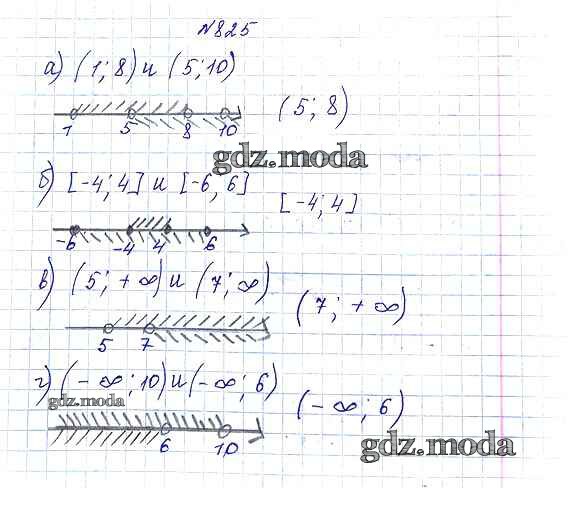 №825
а) (1; 8) и (5; 10)
1 5 8 10
(5; 8)
gdz.moda
б) [-4; 4] и [-6, 6]
[-4; 4]
-6 -4 4 6
в) (5; +∞) и (7; ∞)
(7; +∞)
5 7
г) (-∞; 10) и (-∞; 6)
gdz.moda
(-∞; 6)
6 10
gdz.moda